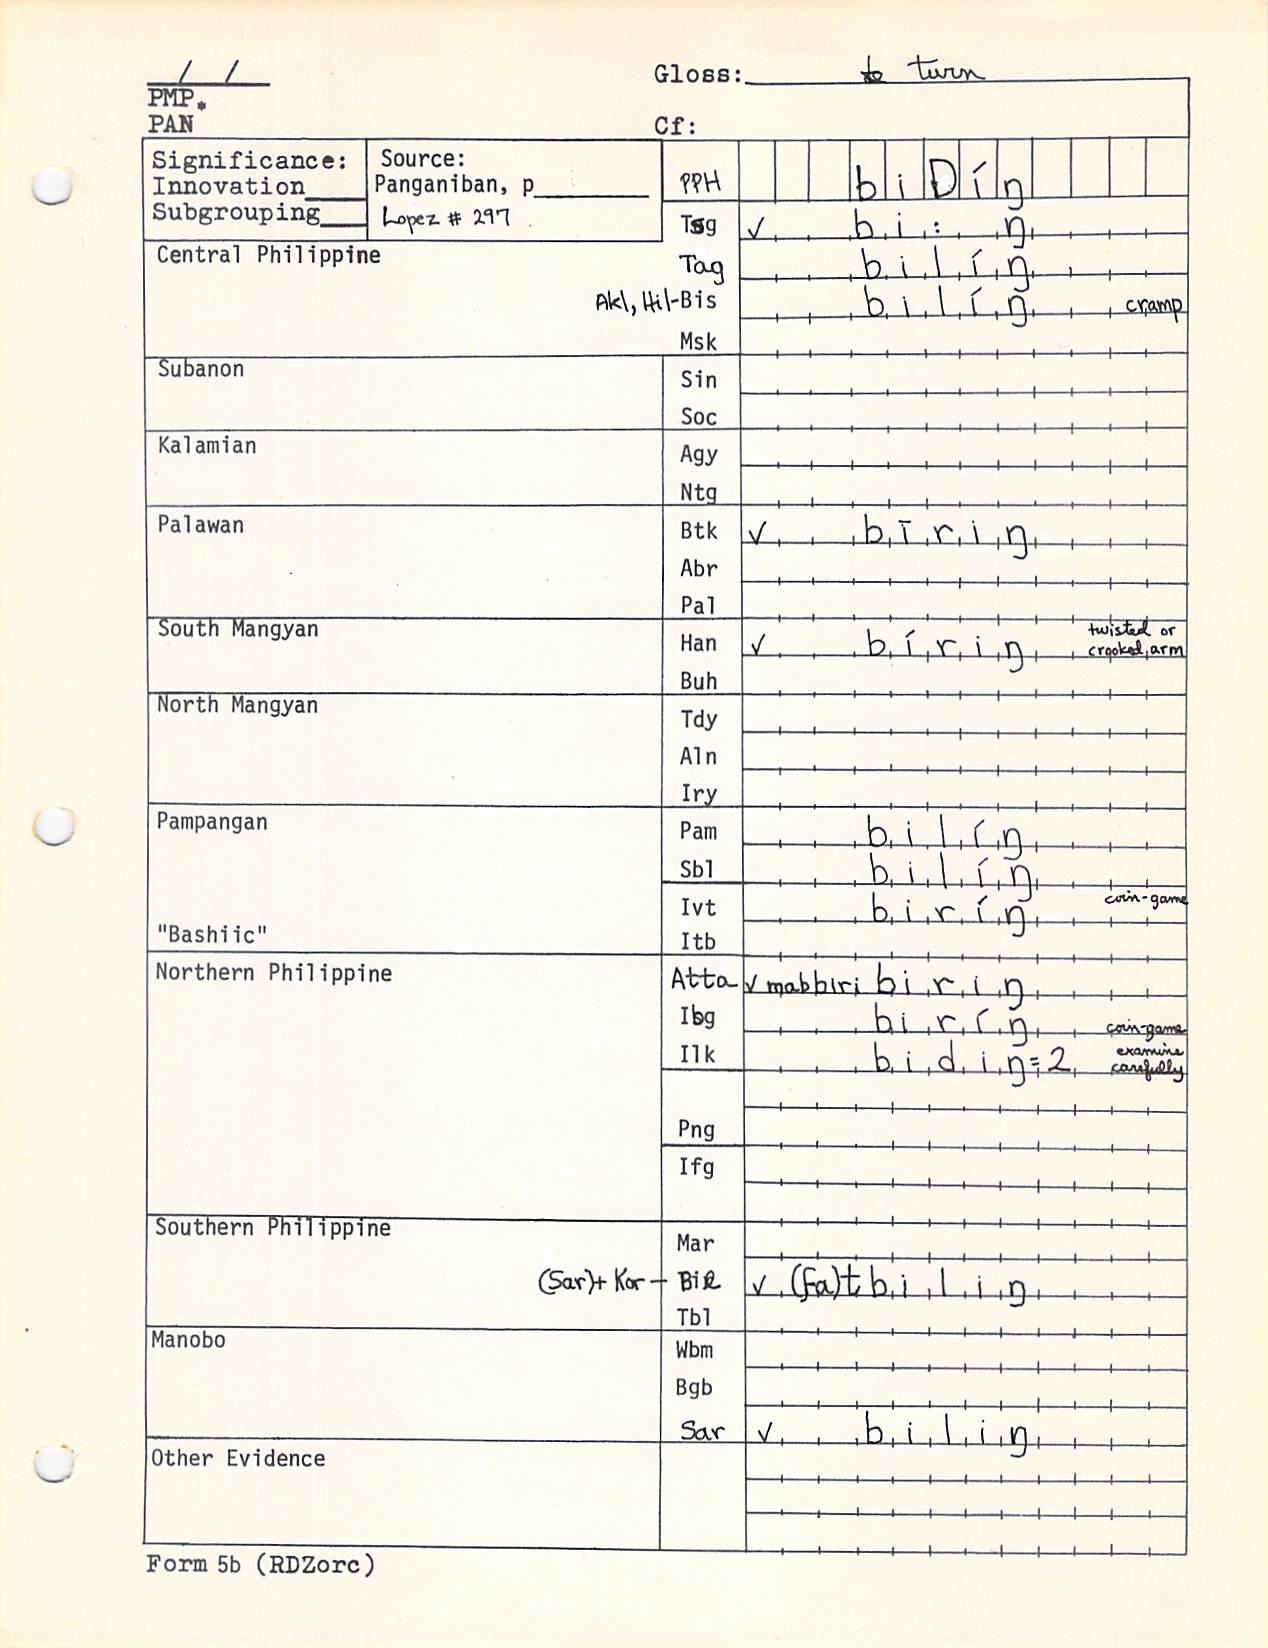 / /
Gloss: to turn
PMP *
PAN
Cf:
Significance:
Innovation
Subgrouping
Source:
Panganiban, p
Lopez # 297
PPH biDíŋ
Tsg ✓ bi:ŋ
Central Philippine
Tag bilíŋ
Akl, Hil-Bis bilíŋ cramp
Msk
Subanon
Sin
Soc
Kalamian
Agy
Ntg
Palawan
Btk ✓ bīriŋ
Abr
Pal
South Mangyan
Han ✓ bíriŋ twisted or crooked arm
Buh
North Mangyan
Tdy
Aln
Iry
Pampangan
Pam bilíŋ
Sbl bilíŋ
Ivt biríŋ coin-game
"Bashiic"
Itb
Northern Philippine
Atta ✓ mabbiribiriŋ
Ibg biríŋ coin-game
Ilk bidiŋ=2 examine carefully
Png
Ifg
Southern Philippine
Mar
(Sar)+ Kor - Bil ✓ (fa)tbiliŋ
Tbl
Manobo
Wbm
Bgb
Sar ✓ biliŋ
Other Evidence
Form 5b (RDZorc)